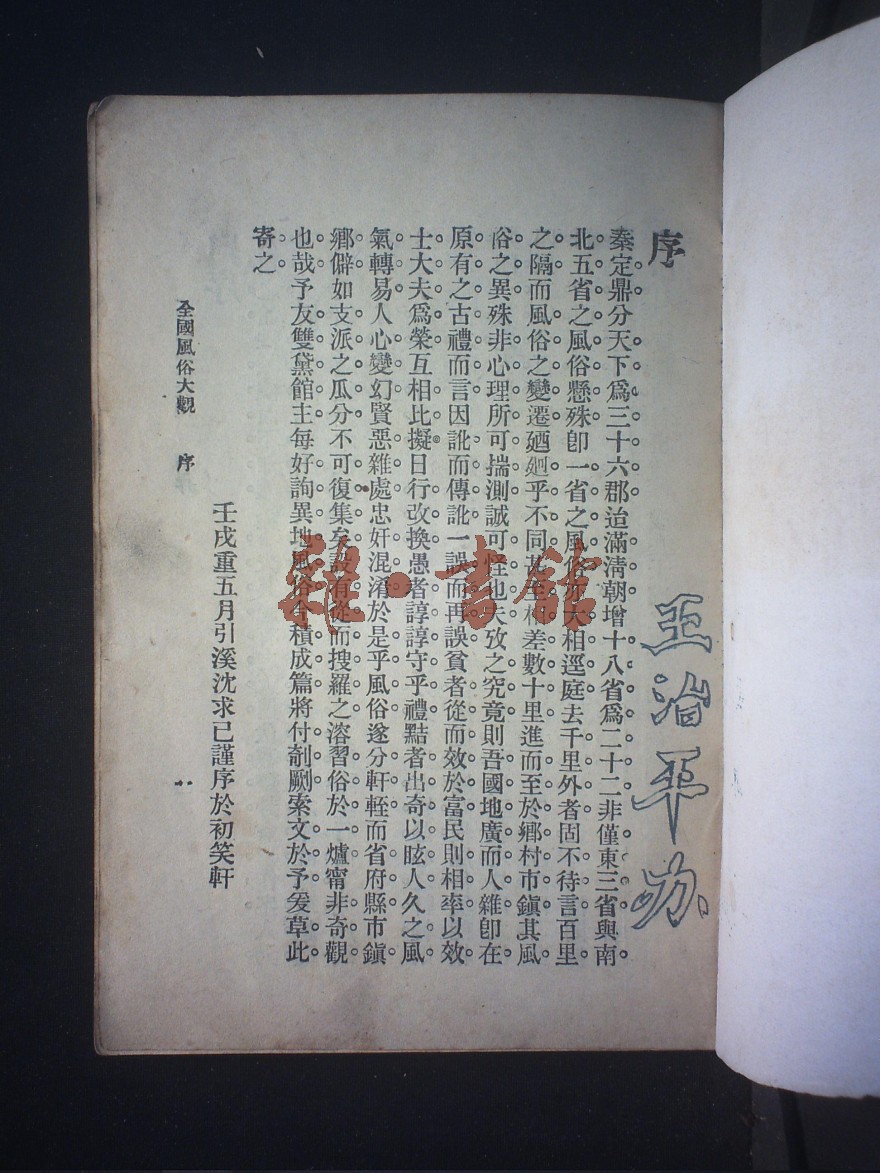 序
秦定鼎分天下爲三十六郡迨滿清朝增十八省爲二十二非僅東三省與南
北五省之風俗懸殊卽一省之風俗亦大相逕庭去千里外者固不待言百里
之隔而風俗之變遷廼廻乎不同尤至相差數十里進而至於鄉村市鎭其風
俗之異殊非心理所可揣測誠可怪也夫攷之究竟則吾國地廣而人雜卽在
原有之古禮而言因訛而傳訛一誤而再誤貧者從而效於富民則相率以效
士大夫爲榮互相比擬日行改換愚者諄諄守乎禮黠者出奇以眩人久之風
氣轉易人心變幻賢惡雜處忠奸混淆於是乎風俗遂分軒輊而省府縣市鎭
鄉僻如支派之瓜分不可復集矣設有從而搜羅之溶習俗於一爐甯非奇觀
也哉予友雙黛館主每好詢異地風俗今積成篇將付剞劂索文於予爰草此
寄之
壬戌重五月引溪沈求已謹序於初笑軒
全國風俗大觀 序
王治平
雜·書館